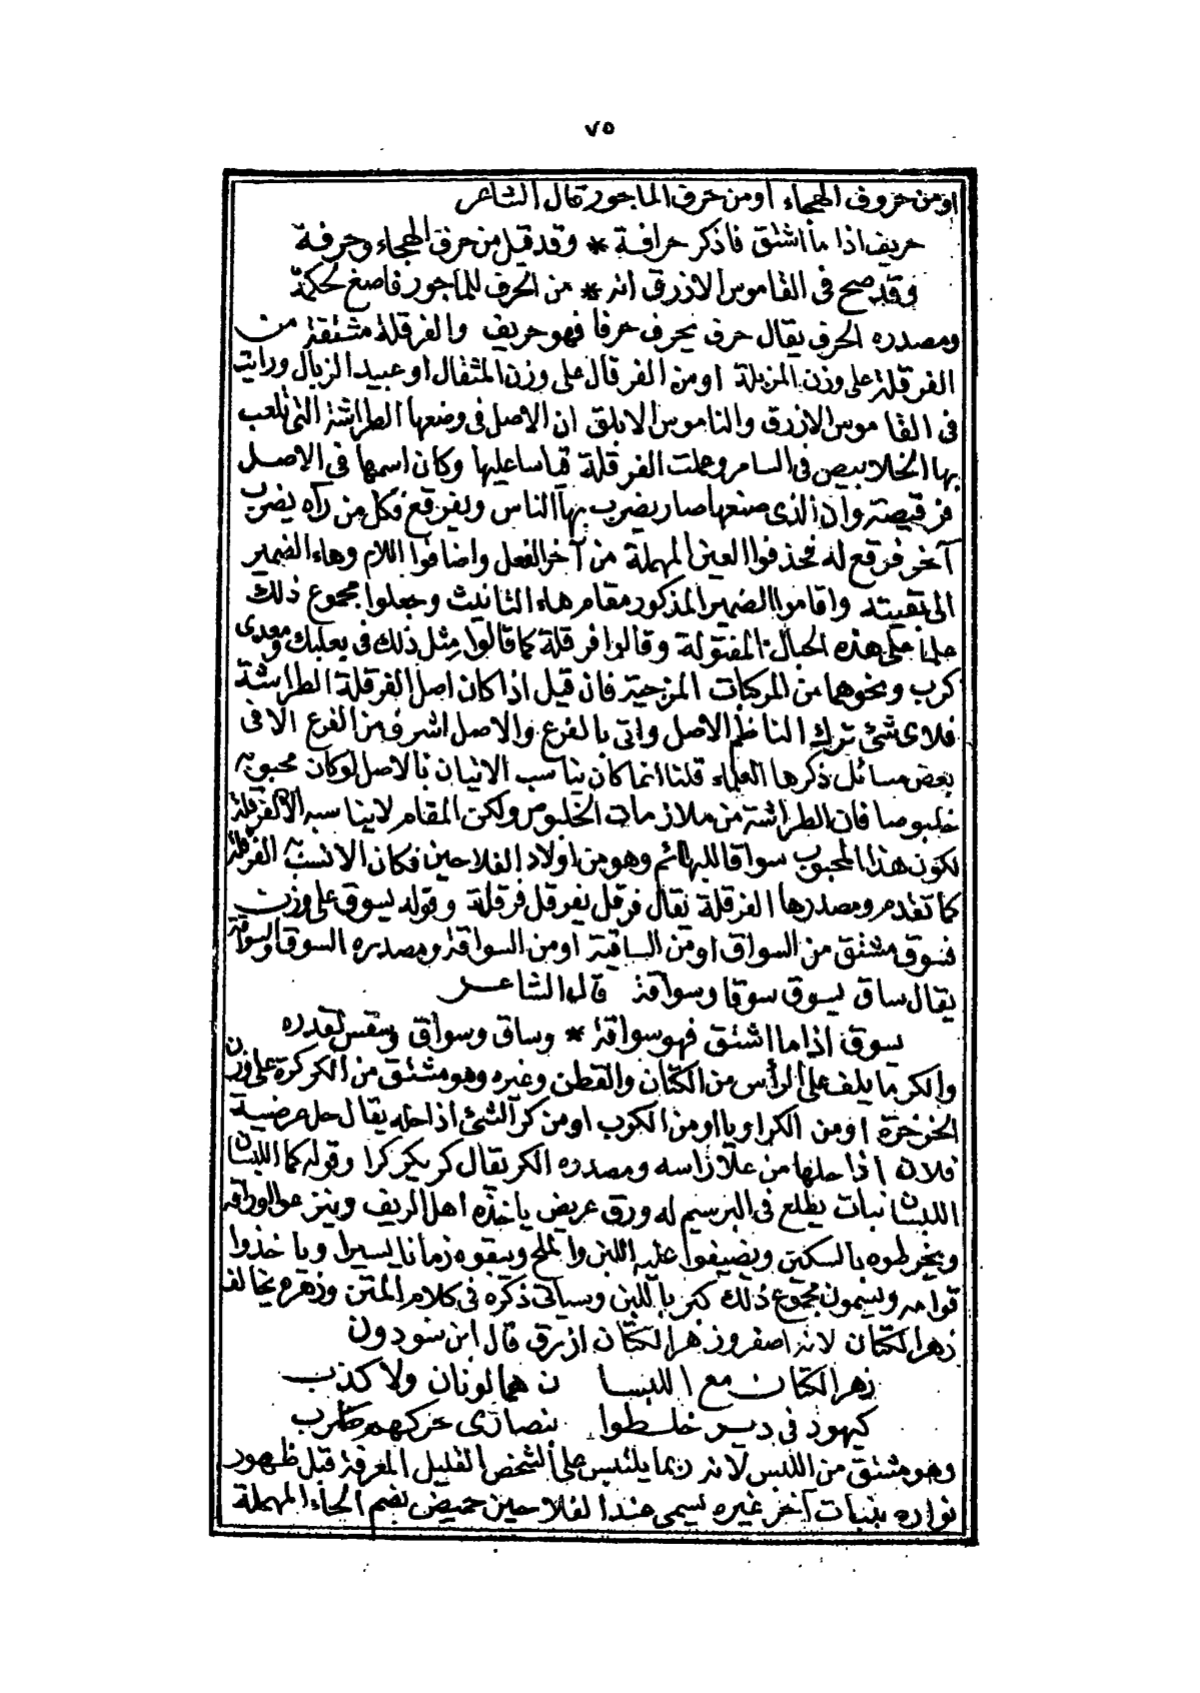 ٧٥
او من حروف الهجاء او من حرف الماجور قال الشاعر
حريف اذا ما اشتق فاذكر حرافة * وقد قيل من حرف الهجاء وحرفة
وقد صح في القاموس الازرق انه * من الحرف للماجور فاصغ لحكمة
ومصدره الحرف يقال حرف يحرف حرفا فهو حريف والفرقلة مشتقة من
الفرقلة على وزن المزبلة او من الفرقال على وزن المثقال او عبيد الزبال ورايت
في القاموس الازرق والناموس الابلق ان الاصل في وضعها الطراشة التي تلعب
بها الخلابيص في السامر وعملت الفرقلة قياسا عليها وكان اسمها في الاصل
فرقيصته وان الذي صنعها صار يضرب بها الناس ويفرقع فكل من رآه يضرب
آخر فرقع له فحذفوا العين المهملة من آخر الفعل واضافوا اللام وهاء الضمير
الى بقيته واقاموا الضمير المذكور مقام هاء التانيث وجعلوا مجموع ذلك
علما على هذه الحبال المفتولة وقالوا فرقلة كما قالوا مثل ذلك في بعلبك ومعدى
كرب ونحوهما من المركبات المزجية فان قيل اذا كان اصل الفرقلة الطراشة
فلاى شئ ترك الناظم الاصل واتى بالفرع والاصل اشرف من الفرع الا في
بعض مسائل ذكرها العلماء قلنا انما كان يناسب الاتيان بالاصل لو كان محبوبه
خلبوصا فان الطراشة من ملازمات الخلبوص ولكن المقام لا يناسبه الا الفرقلة
لكون هذا المحبوب سواقا للبهائم وهو من اولاد الفلاحين فكان الانسب الفرقلة
كما تقدم ومصدرها الفرقلة يقال فرقل يفرقل فرقلة وقوله يسوق على وزن
فنوق مشتق من السواق او من الساقية او من السواقة ومصدره السوق والسواقة
يقال ساق يسوق سوقا وسواقة قال الشاعر
يسوق اذا ما اشتق فهو سواقة * وساق وسواق وسقس لقدره
والكر ما يلف على الرأس من الكتان والقطن وغيره وهو مشتق من الكركرة على وزن
الخرخرة او من الكراويا او من الكرب او من كر الشئ اذا حله يقال حل عرضية
فلان اذا حلها من على راسه ومصدره الكر يقال كر يكر كرا وقوله كما اللبسان
اللبسان نبات يطلع في البرسيم له ورق عريض ياخذه اهل الريف وينزعوا اوراقه
ويخرطوه بالسكين ويضيفوا عليه اللبن والملح ويبقوه زمانا يسيرا وياخذوا
قوامه ويسمون مجموع ذلك كبر باللبن وسياتى ذكره في كلام المتن وزهره يخالف
زهر الكتان لانه اصفر وزهر الكتان ازرق قال ابن سودون
زهر الكتان مع اللبسا ن هما لونان ولا كذب
كيهود في دير خلطوا بنصارى حركهم طرب
وهو مشتق من اللبس لانه ربما يلتبس على الشخص القليل المعرفة قبل ظهور
نواره بنبات آخر غيره يسمى عند الفلاحين حميض بضم الحاء المهملة